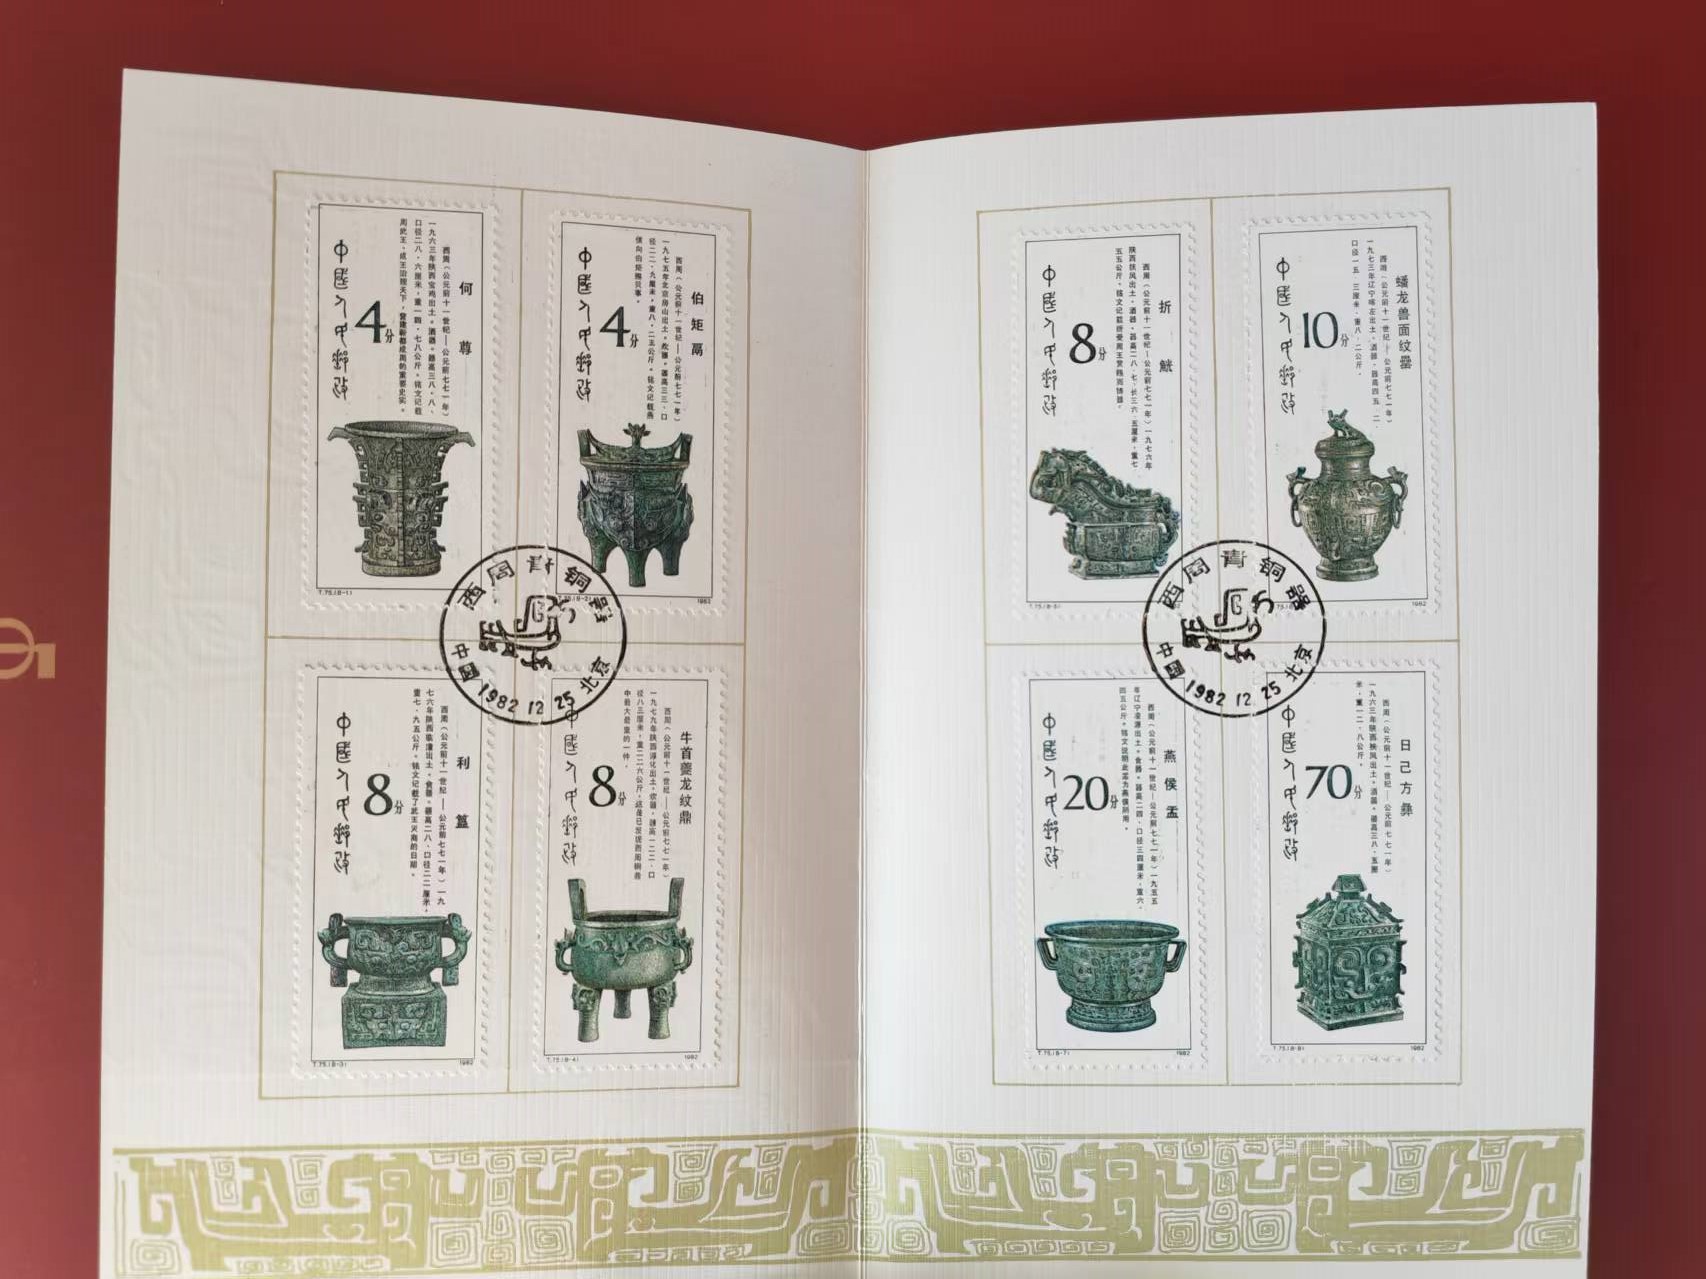 何尊
西周（公元前十一世纪——公元前七七一年）
一九六三年陕西宝鸡出土。酒器。器高三八·八、
口径二八·六厘米，重一四·七八公斤。铭文记载
周武王、成王治理天下，营建新都成周的重要史实。
4分
中国人民邮政
T.75.(8-1)
伯矩鬲
西周（公元前十一世纪——公元前七七一年）
一九七五年北京房山出土。炊器。器高三三、口
径二二·九厘米，重八·二五公斤。铭文记载燕
侯向伯矩赐贝事。
4分
中国人民邮政
T.75.(8-2)
1982
利簋
西周（公元前十一世纪——公元前七七一年）一九
七六年陕西临潼出土。食器。器高二八、口径二二厘米，
重七·九五公斤。铭文记载了武王灭商的日期。
8分
中国人民邮政
T.75.(8-3)
1982
牛首夔龙纹鼎
西周（公元前十一世纪——公元前七七一年）
一九七九年陕西淳化出土。炊器。器高一二二、口
径八三厘米，重二二六公斤，这是已发现西周铜器
中最大最重的一件。
8分
中国人民邮政
T.75.(8-4)
1982
西周青铜器
中国
1982 12 25
北京
折觥
西周（公元前十一世纪——公元前七七一年）一九七六年
陕西扶风出土。酒器。器高二八·七、长三六·五厘米，重七·
五五公斤。铭文记载折受周王赏赐而铸器。
8分
中国人民邮政
T.75.(8-5)
蟠龙兽面纹罍
西周（公元前十一世纪——公元前七七一年）
一九七三年辽宁喀左出土。酒器。器高四五·二、
口径一五·三厘米，重八·二公斤。
10分
中国人民邮政
1982
燕侯盂
西周（公元前十一世纪——公元前七七一年）一九五五
年辽宁凌源出土。食器。器高二四、口径三四厘米，重六·
四五公斤。铭文说明此盂为燕侯所用。
20分
中国人民邮政
T.75.(8-7)
1982
日己方彝
西周（公元前十一世纪——公元前七七一年）
一九六三年陕西扶风出土。酒器。器高三八·五厘
米，重一二·八公斤。
70分
中国人民邮政
T.75.(8-8)
1982
西周青铜器
中国
1982 12 25
北京